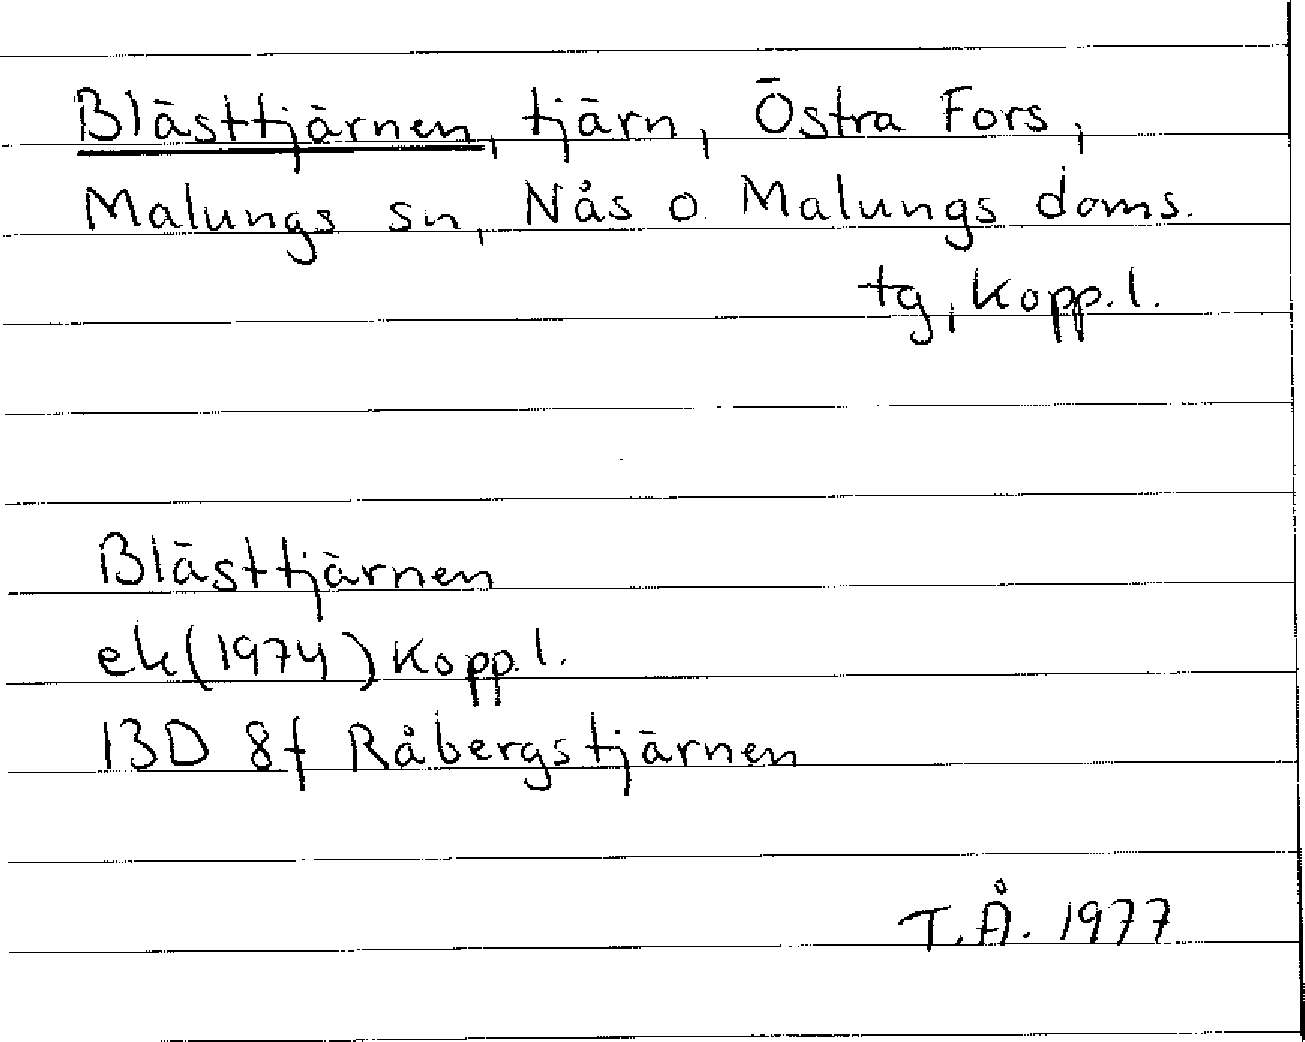 Blästtjärnen, tjärn, Östra Fors,
Malungs sn, Nås o. Malungs doms.
tg, Kopp.l.
Blästtjärnen
ek (1974) Kopp.l.
13D 8f Råbergstjärnen
T.Å. 1977